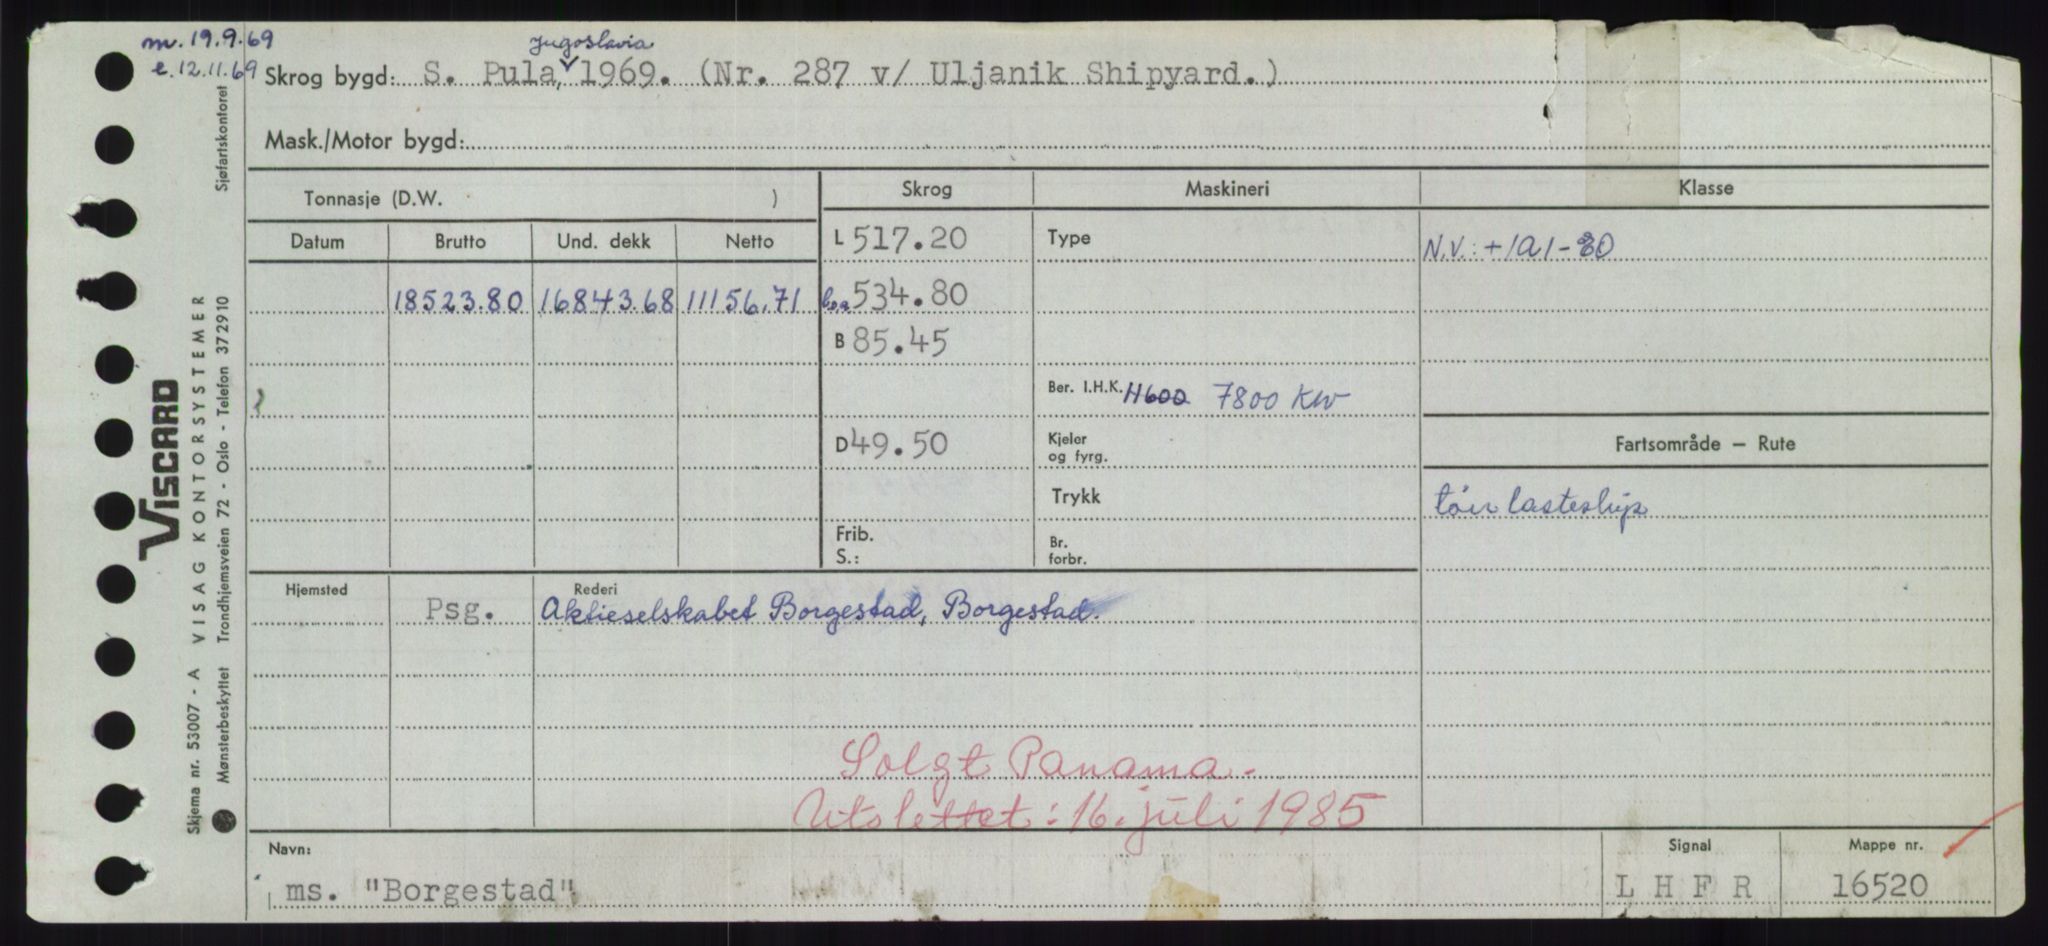 m. 19.9.69
e. 12.11.69
Jugoslavia
Skrog bygd: S. Pula, 1969. (Nr. 287 v/ Uljanik Shipyard.)
Mask./Motor bygd:
Tonnasje (D.W. )
Skrog Maskineri Klasse
Datum Brutto Und. dekk Netto
L 517.20 Type N.V.: +1A1-EO
18523.80 16843.68 11156.71 l.oa 534.80
B 85.45
Ber. I.H.K. 11600 7800 KW
D 49.50 Kjeler og fyrg.
Fartsområde – Rute
Trykk
tørrlasteskip
Frib.
S.:
Br. forbr.
Hjemsted Rederi
Psg. Aktieselskabet Borgestad, Borgestad.
Solgt Panama.
Utslettet: 16. juli 1985
Navn: Signal Mappe nr.
ms. "Borgestad" L H F R 16520
VISCARD
Skjema nr. 53007 - A VISAG KONTORSYSTEMER
Mønsterbeskyttet Trondhjemsveien 72 - Oslo - Telefon 372910 Sjøfartskontoret